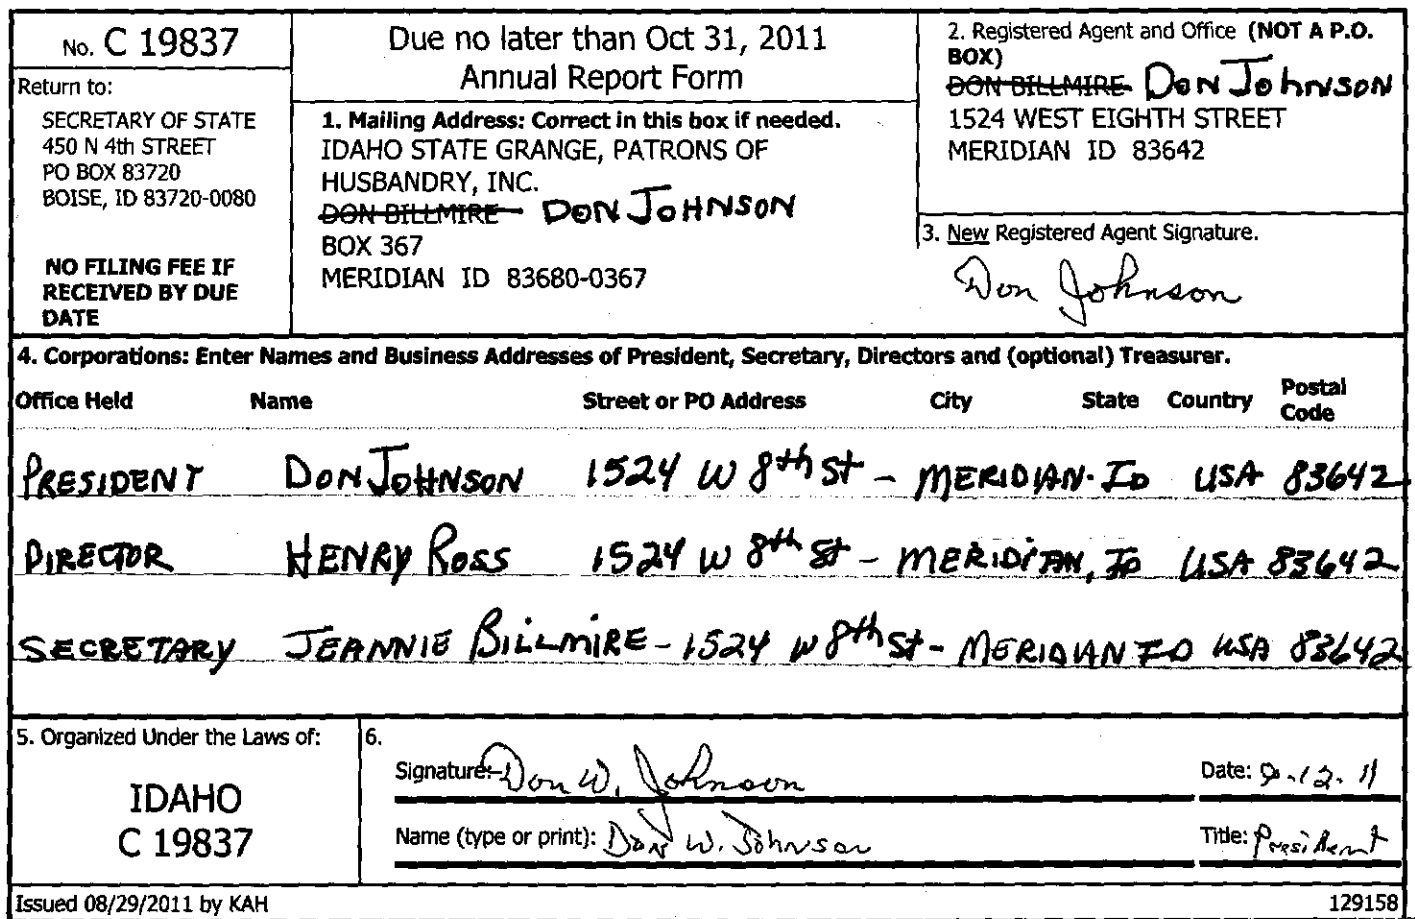 No. C 19837
Return to:
SECRETARY OF STATE
450 N 4th STREET
PO BOX 83720
BOISE, ID 83720-0080
NO FILING FEE IF
RECEIVED BY DUE
DATE
Due no later than Oct 31, 2011
Annual Report Form
1. Mailing Address: Correct in this box if needed.
IDAHO STATE GRANGE, PATRONS OF
HUSBANDRY, INC.
DON BILLMIRE DON JOHNSON
BOX 367
MERIDIAN ID 83680-0367
2. Registered Agent and Office (NOT A P.O.
BOX)
DON BILLMIRE DON JOHNSON
1524 WEST EIGHTH STREET
MERIDIAN ID 83642
3. New Registered Agent Signature.
Don Johnson
4. Corporations: Enter Names and Business Addresses of President, Secretary, Directors and (optional) Treasurer.
Office Held Name Street or PO Address City State Country Postal Code
PRESIDENT DON JOHNSON 1524 W 8th St - MERIDIAN. ID USA 83642
DIRECTOR HENRY ROSS 1524 W 8th St - MERIDIAN, ID USA 83642
SECRETARY JEANNIE BILLMIRE - 1524 W 8th St - MERIDIAN ID USA 83642
5. Organized Under the Laws of:
IDAHO
C 19837
6.
Signature: Don W. Johnson Date: 9.12.11
Name (type or print): Don W. Johnson Title: President
Issued 08/29/2011 by KAH 129158